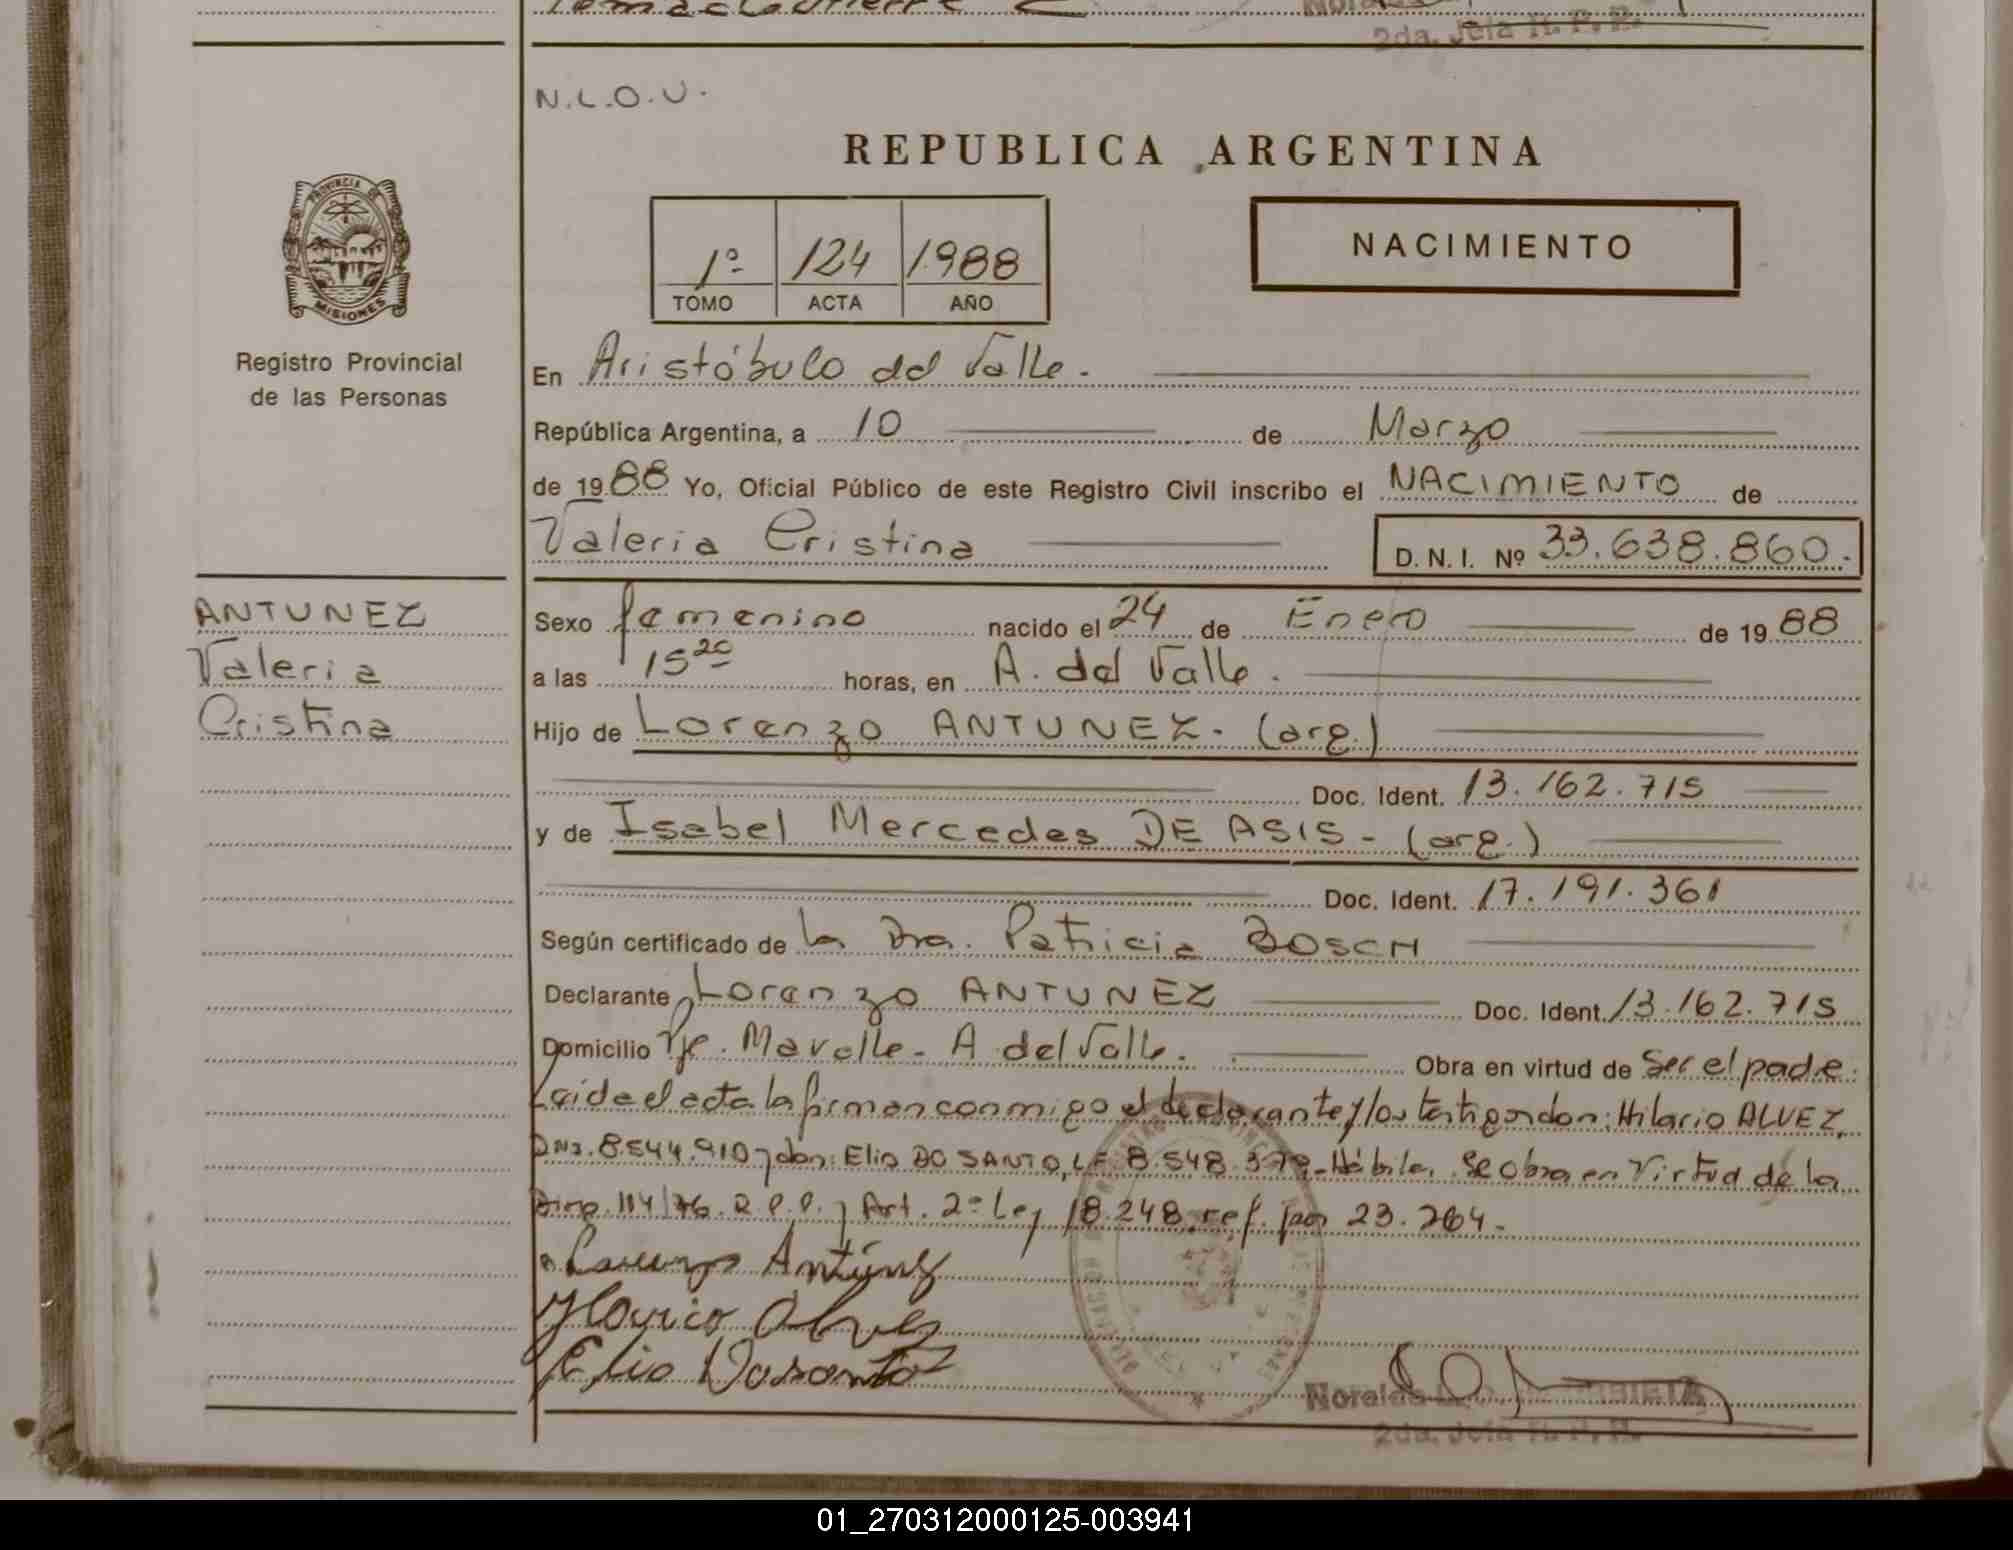 N.L.O.U.
REPUBLICA ARGENTINA
1º 124 1988
TOMO ACTA AÑO
NACIMIENTO
PROVINCIA DE
MISIONES
Registro Provincial
de las Personas
En Aristóbulo del Valle.
República Argentina, a 10 de Marzo
de 1988 Yo, Oficial Público de este Registro Civil inscribo el NACIMIENTO de
Valeria Cristina D. N. I. Nº 33.638.860.
ANTUNEZ
Valeria
Cristina
Sexo femenino nacido el 24 de Enero de 1988
a las 15 20 horas, en A. del Valle.
Hijo de Lorenzo ANTUNEZ. (arg.)
Doc. Ident. 13.162.715
y de Isabel Mercedes DE ASIS - (arg.)
Doc. Ident. 17.191.361
Según certificado de la Dra. Patricia BOSCH
Declarante Lorenzo ANTUNEZ Doc. Ident. 13.162.715
Domicilio Pje. Mavalle - A. del Valle. Obra en virtud de Ser el padre.
Leída el acta la firman conmigo el declarante y los testigos don: Hilario ALVEZ,
DNI. 8.544.910 y don: Elio DO SANTO, LE 8.548.379 - Hábiles. Se obra en Virtud de la
Disp. 114/76. R.P.P. y Art. 2º Ley 18.248 ref. por 23.264.
Lorenzo Antúnez
Hilario Alves
Elio Dosanto
2da. Jefa R. P. P.
01_270312000125-003941